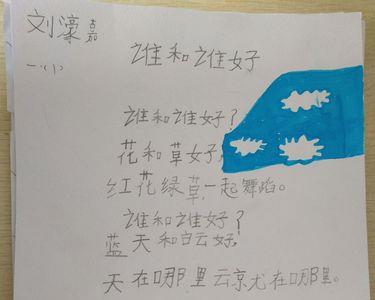 刘濠嘉
谁和谁好
一(1)
谁和谁好?
花和草好,
红花绿草一起舞蹈。
谁和谁好?
蓝天和白云好,
天在哪里云京尤在哪里。